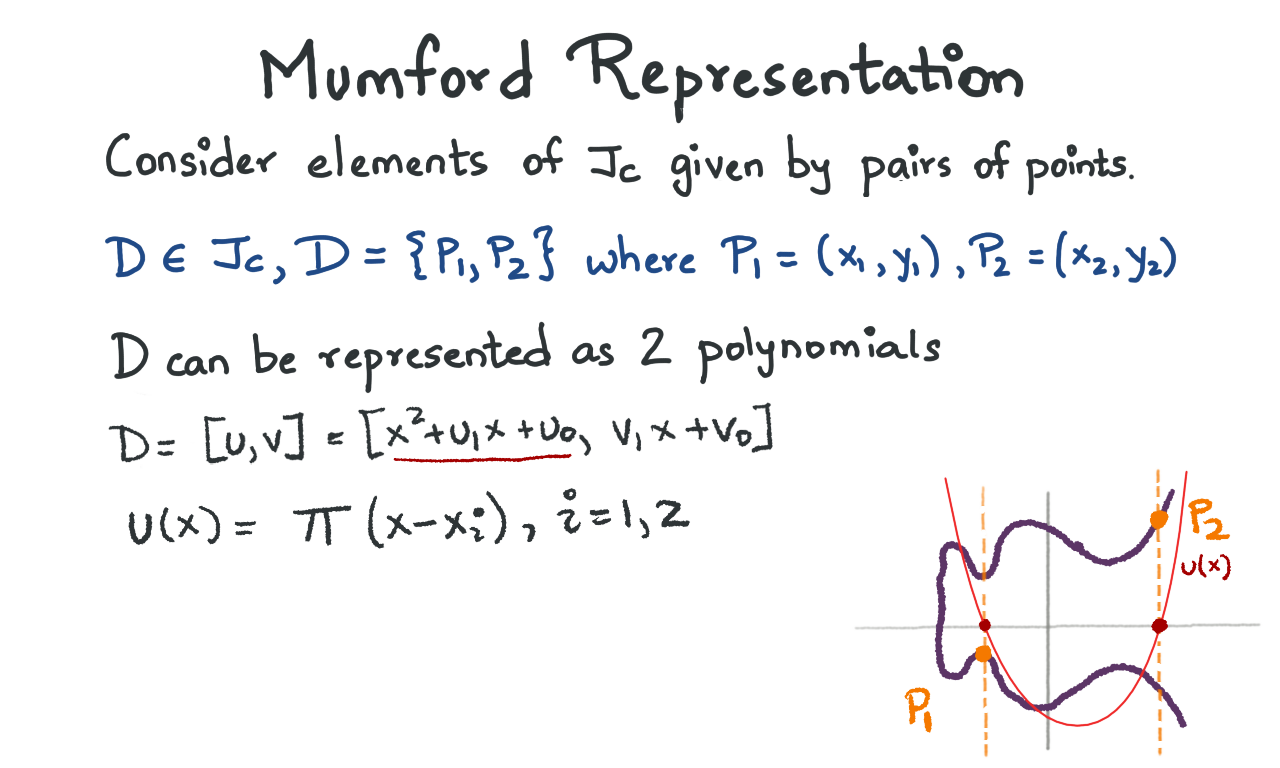 Mumford Representation
Consider elements of Jc given by pairs of points.
D ∈ Jc, D = {P₁, P₂} where P₁ = (x₁, y₁), P₂ = (x₂, y₂)
D can be represented as 2 polynomials
D = [u, v] = [x² + u₁x + u₀, v₁x + v₀]
u(x) = π (x - xᵢ), i = 1, 2
P₂
u(x)
P₁